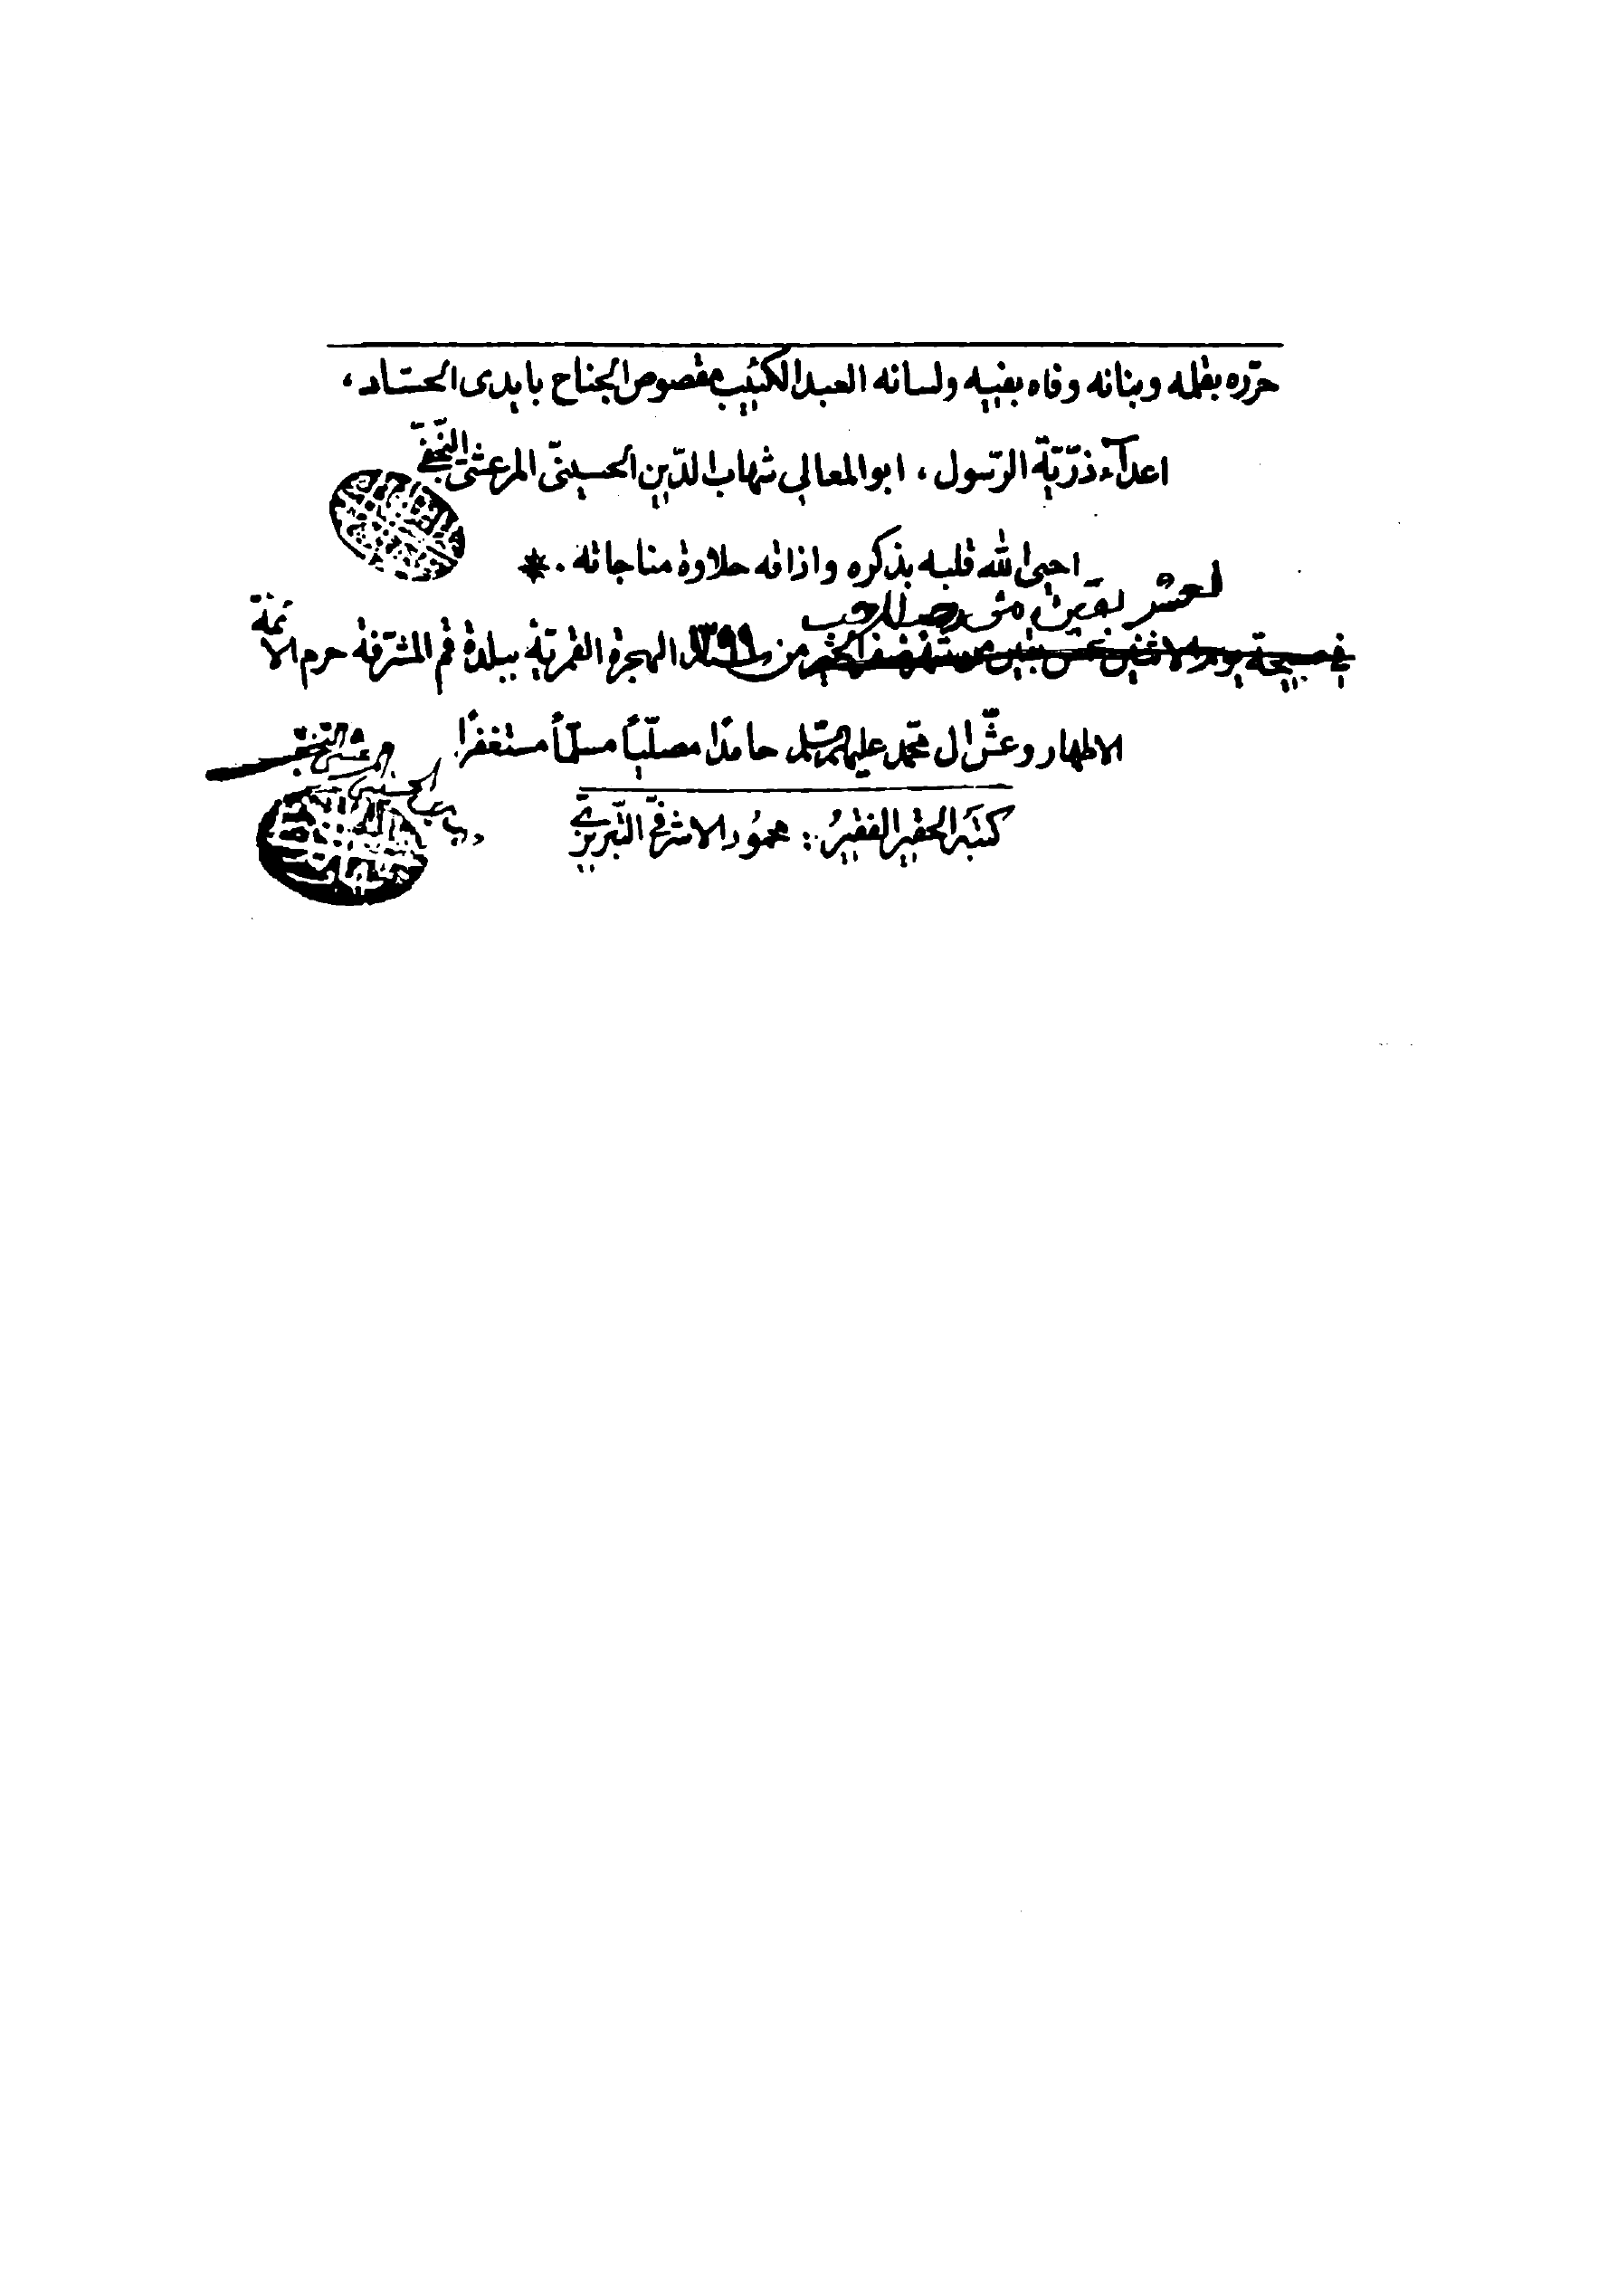 حرّره بقلمه وبنانه وفاه بفيه ولسانه العبد الكئيب مقصوص الجناح بايدى الحسّاد،
اعدآء ذرّيّة الرّسول، ابو المعالي شهاب الدّين الحسينىّ المرعشىّ النّجفىّ
احيى الله قلبه بذكره واذاقه حلاوة مناجاته. *
لعشر بقين من رجب المرجب
فى صبيحة يوم الاثنين من سنة ١٣٩٩ الهجرة القمريّة ببلدة قم المشرّفة حرم الائمّة
الاطهار وعشّ ال محمّد عليهم حامدًا مصلّيًا مسلّمًا مستغفرًا
كتبه الحقير الفقير: محمود الاشرفىّ التّبريزىّ